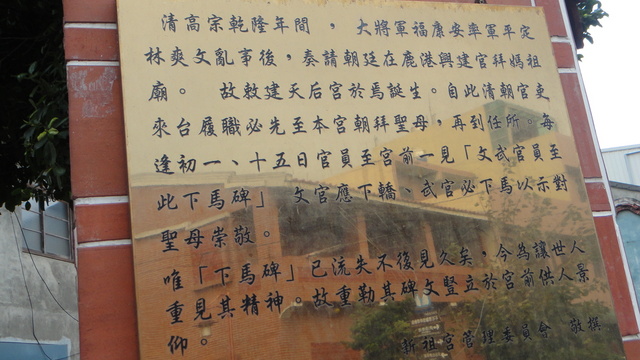 清高宗乾隆年間，大將軍福康安率軍平定
林爽文亂事後，奏請朝廷在鹿港興建官拜媽祖
廟。故敕建天后宮於焉誕生。自此清朝官吏
來台履職必先至本宮朝拜聖母，再到任所。每
逢初一、十五日官員至宮前一見「文武官員至
此下馬碑」文官應下轎、武官必下馬以示對
聖母崇敬。
唯「下馬碑」已流失不復見久矣，今為讓世人
重見其精神。故重勒其碑文豎立於宮前供人景
仰。
新祖宮管理委員會 敬撰